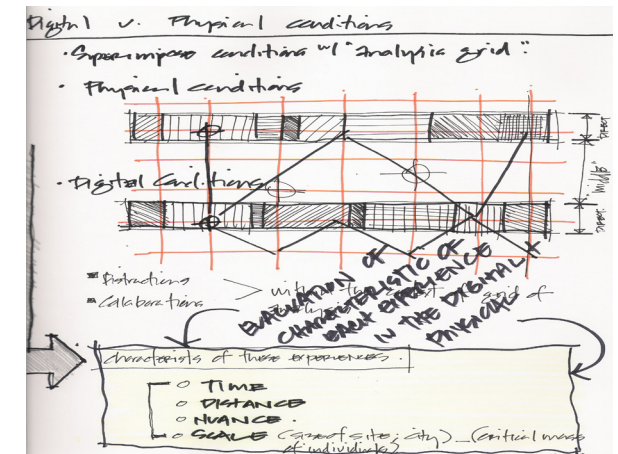 Digital v. Physical conditions
• Superimpose conditions w/ "analysis grid":
• Physical conditions
DIRECT
"MIDDLE"
• Digital Conditions
DIRECT
Distractions
Collaborations
> within the grid of
EVALUATION OF
CHARACTERISTIC OF
EACH EXPERIENCE
IN THE DIGITAL &
PHYSICAL
characterists of these experiences.
○ TIME
○ DISTANCE
○ NUANCE.
○ SCALE (size of site; city) (critical mass
of individuals)